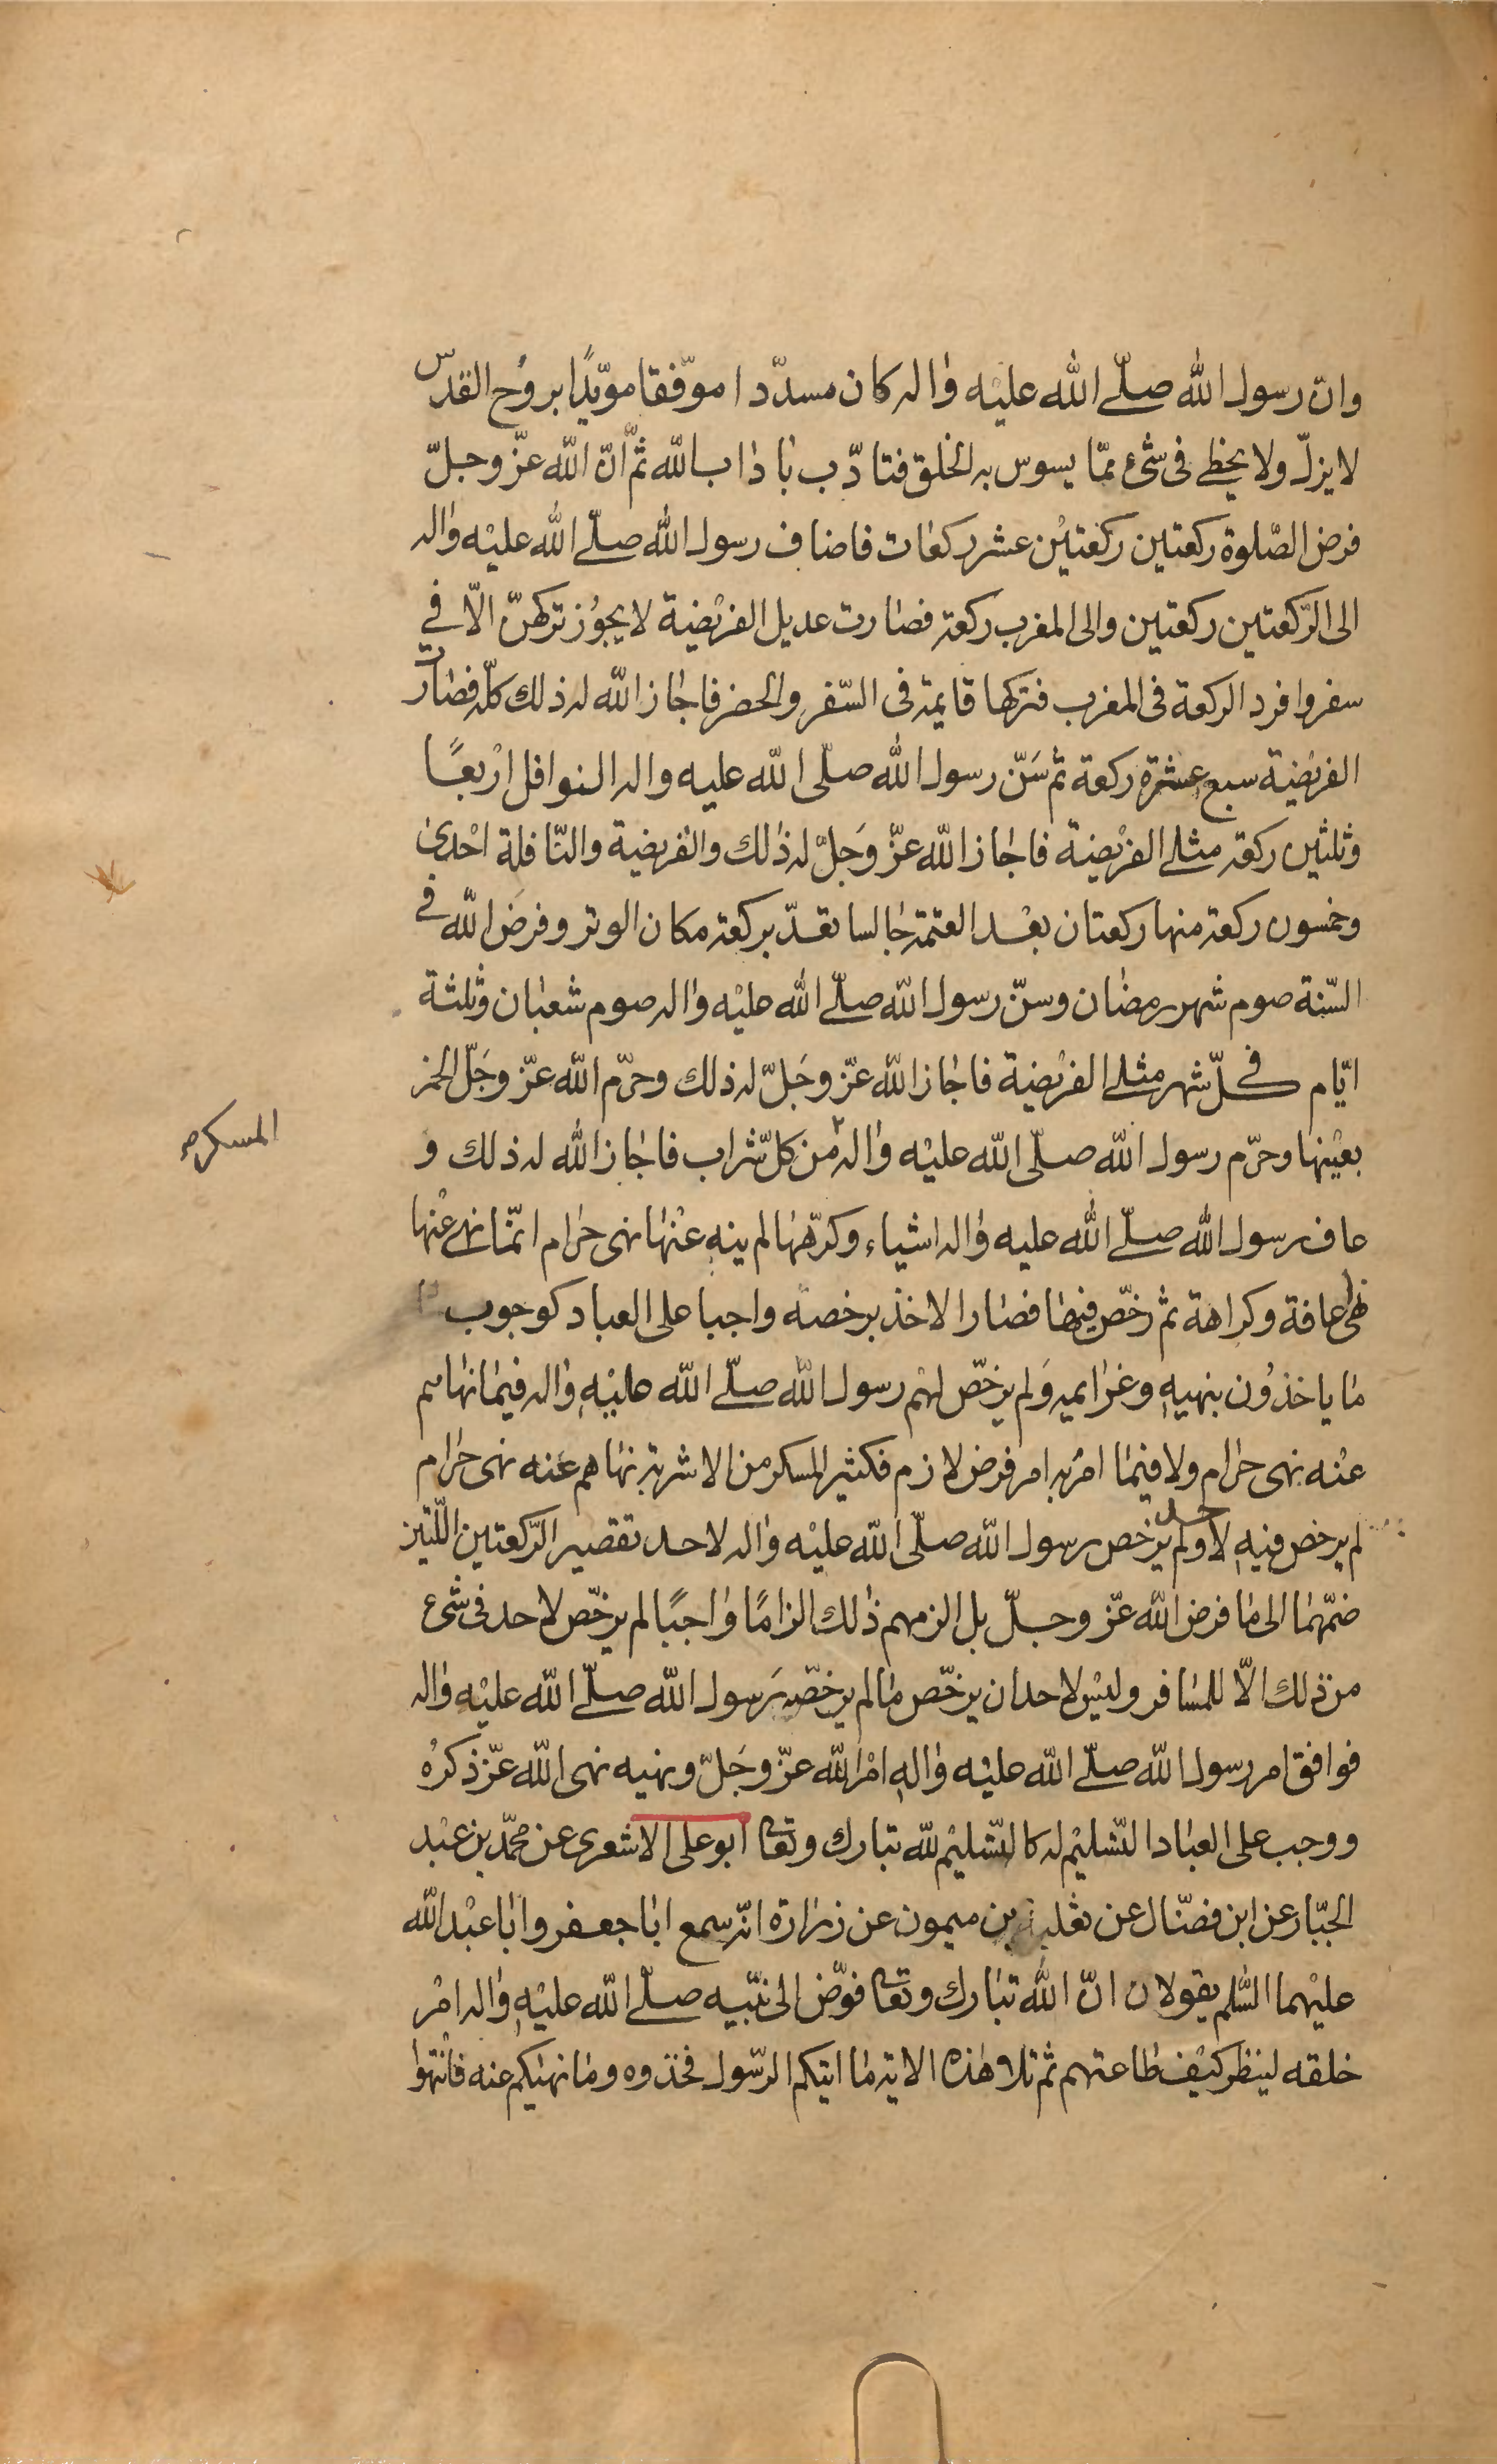 وانّ رسول الله صلّى الله عليْه واله كان مسدّدا موّفقا مويّدًا بروُح القدسّ
لا يزلّ ولا يخطى فى شىء ممّا يسوس به الخلق فتادّب باداب الله ثمّ انّ الله عزّ وجلّ
فرض الصّلوة ركعتين ركعتيْن عشر ركعات فاضاف رسول الله صلّى الله عليْه واله
الى الرّكعتين ركعتين والى المغرب ركعة فصارت عديل الفريْضية لا يجوُز تركهنّ الاّ فى
سفر وافرد الركعة فى المغرب فتركها قايمة فى السّفر والحضر فاجاز الله له ذلك كلّه فصارت
الفريْضية سبع عشرة ركعة ثم سَنّ رسول الله صلّى الله عليه واله النوافل ارْبعًا
وثلثين ركعة مثلى الفريْضية فاجاز الله عزّ وَجلّ له ذالك والفريضية والنّافلة احْدى
وخمسون ركعة منها ركعتان بعْد العتمة جالسا تعدّ بركعة مكان الوتر وفرضَ الله فى
السّنة صوم شهر رمضان وسنّ رسول الله صلّى الله عليْه واله صوم شعبان وثلثة
ايّام فى كلّ شهر مثلى الفريْضية فاجاز الله عزّ وجَلّ له ذلك وحرّم الله عزّ وجَلّ الخمر
بعيْنها وحرّم رسول الله صلّى الله عليْه واله من كلّ شراب فاجاز الله له ذلك و
المسكر صح
عاف رسول الله صلّى الله عليه واله اشياء وكرّهها لم ينه عنْها نهى حرام انّما نهى عنْها
نهى عافة وكراهة ثم رخّص فيها فصارا لاخذ برخصه واجبا على العباد كوجوب
ما ياخذوُن بنهيه وعزايمه وَلم يرخّص لهْم رسول الله صلّى الله عليْه واله فيما نهاهم
عنْه نهى حرام ولا فيما امرُ به امر فرض لازم فكثير المسكر من الاشربة نهاهم عنه نهى حرام
لم يرخص فيه لاحد ولم يرخص رسول الله صلّى الله عليْه واله لاحد تقصير الرّكعتين اللّتين
ضمّهما الى ما فرض الله عزّ وجلّ بل الزمهم ذالك الزامًا واجبًا لم يرخّص لاحد فى شىء
من ذلك الاّ للمسافر وليْس لاحد ان يرخّص ما لم يرخّصه رَسول الله صلّى الله عليْه واله
فوافق امر رسول الله صلّى الله عليْه واله امْر الله عزّ وجَلّ ونهيه نهى الله عزّ ذكرُه
ووجب على العبادا لتّسليْم له كالتّسليْم لله تبارك وتعا ابو على الاشعرى عن محمّد بن عبْد
الجبّار عن ابن فضّال عن ثعلبة بن ميمون عن زرارة انّه سمع ابا جعفر وابا عبْد الله
عليْهما السّلم يقولان انّ الله تبارك وتعا فوّض الى نبّيه صلّى الله عليْه واله امْر
خلقه لينظر كيْف طاعتهم ثم تلا هذه الاية ما اتيكم الرّسول فخذوه وما نهيكم عنه فانْتهوا